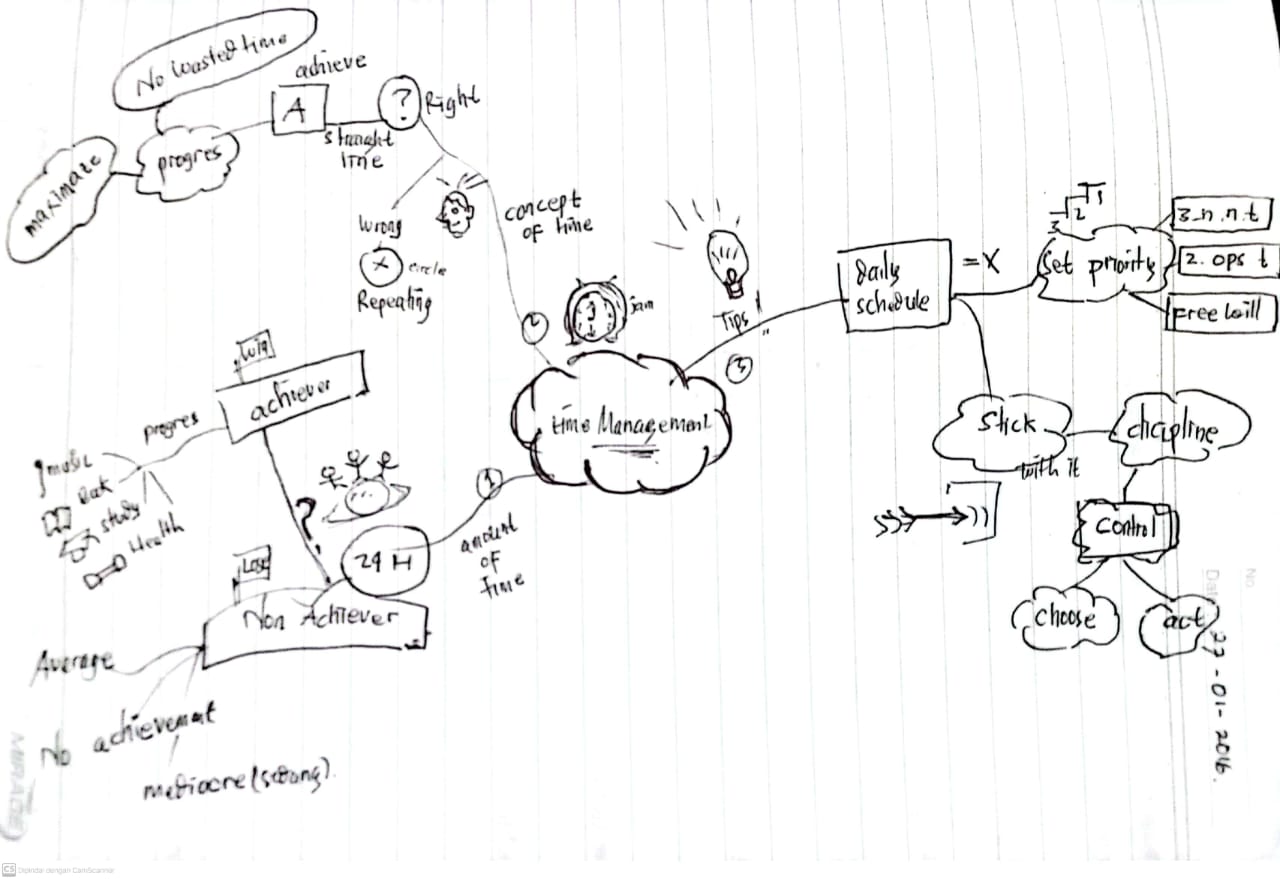 No wasted time
achieve
A
?
Right
straight
line
progres
maximaze
wrong
x
circle
Repeating
concept
of time
2
jam
Tips
3
daily
schedule
= X
1
2
3
Set priority
3. n. n. t
2. ops t
Free will
time Management
Stick
with it
dicipline
control
choose
act
win
achiever
progres
music
study
Health
?
24 H
1
amount
of
time
Lose
Non Achiever
Average
No achievement
mediocre (sedang).
No
Date
22-01-2016.
MIRAGE
CS Dipindai dengan CamScanner